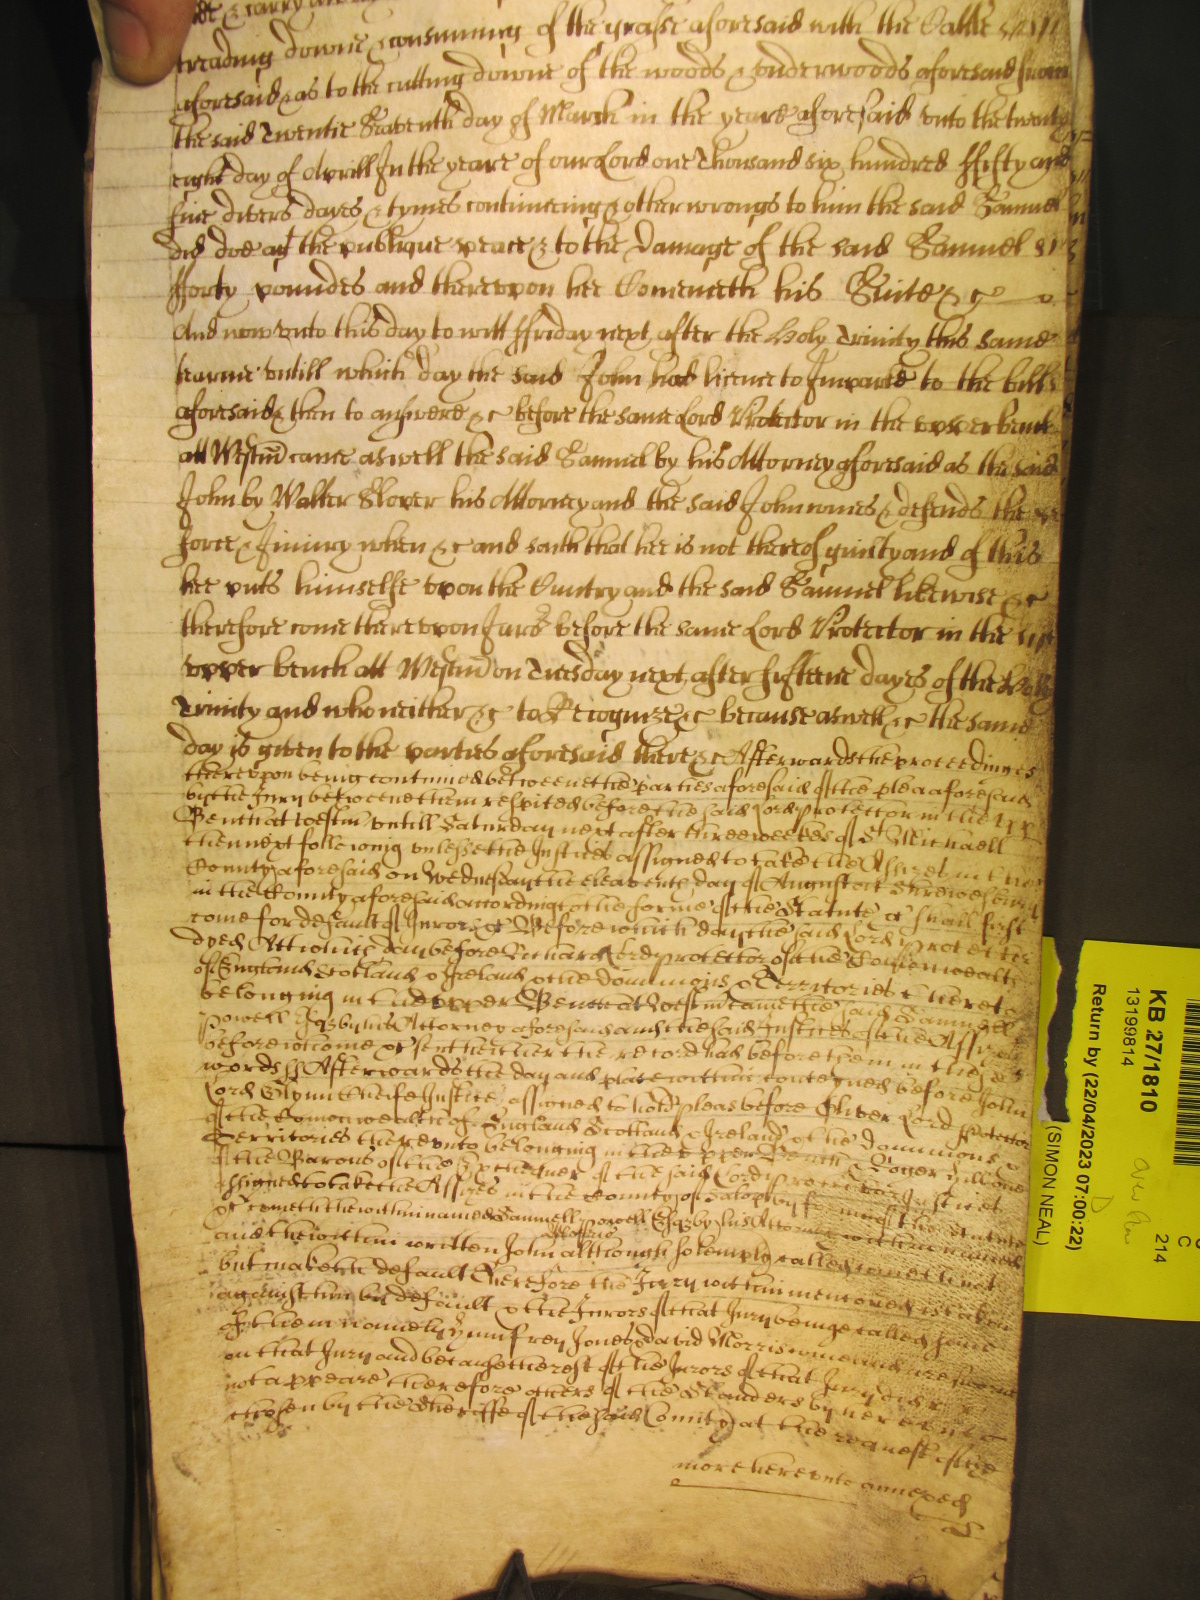 & carry
treading downe & consuming of the grasse aforesaid with the Cattle
aforesaid & as to the cutting downe of the woods & underwoods aforesaid from
the said Twentie Seaventh day of March in the yeare aforesaid unto the twenty
eight day of Aprill In the yeare of our Lord one Thousand six hundred ffifty and
five divers dayes & tymes continueing & other wrongs to him the said Samuel
did doe agt the publique peace & to the Damage of the said Samuel
fforty poundes and thereupon hee bringeth his Suite &c
And now unto this day to witt ffriday next after the Holy Trinity this same
tearme untill which day the said John had licence to Imparle to the bill
aforesaid & then to answere &c before the same Lord Protector in the upper bench
att Westm̄ came aswell the said Samuel by his Attorney aforesaid as the said
John by Walter Slover his Attorney and the said John comes & defends the
force & Iniury when &c and saith that hee is not thereof guilty and of this
hee puts himselfe upon the Cuntry and the said Samuel likewise &c
therefore come thereupon Jurs before the same Lord Protector in the
upper bench att Westm̄ on Tuesday next after fifteene dayes of the Holy
Trinity and who neither &c to Recognize &c because aswell &c the same
day is given to the parties aforesaid there &c Afterwards the proceedinges
thereupon being continued betweene the parties aforesaid of the plea aforesaid
by the Jury betweene them respited before the said Lord protector in the upp
Bench at Westm̄ untill Saturday next after three weekes of St Michaell
then next following unlesse the Justices assigned to take the Assizes in the
County aforesaid on Wednesday the eleaventh day of August att Shrewsbury
in the County aforesaid according to the forme of the Statute &c shall first
come for default of Jurors &c Before which day the said Lord protector
dyed Att which day before Richard Lord protector of the Comonwealth
of England Scotland & Ireland & the dominions & Territories thereto
belonging in the upper Bench at Westm̄ came the said Samuell
Powell Esqr by his Attorney aforesaid and the said Justices of the Assizes
before whome &c sent hither their record had before them in these
words ss Afterwards the day and place within conteyned before John
Lord Glynn Cheife Justice assigned to hold pleas before Oliver Lord Protector
of the Comonwealth of England Scotland & Ireland & the dominions &
Territories thereunto belonging in the upper Bench & Roger Hill one
of the Barons of the Exchequer of the said Lord protector Justices
assigned to take the Assizes in the County of Salop by forme of the statute
&c cometh the within named Samuell Powell Esqr by his Attorney within named
and the within written John although solemply called cometh not
but maketh default Therefore the Jury within mentioned is taken
against him by default & the Jurors of that Jury beinge called some
of them namely Humfrey Jones & david Morris come and are sworne
on that Jury and because the rest of the Jurors of that Jury did
not appeare therefore others of the Standers by
chosen by the Sheriffe of the said County at the request of the
more hereunto annexed
KB 27/1810
13199814
Return by (22/04/2023 07:00:22)
(SIMON NEAL)
C
214
D